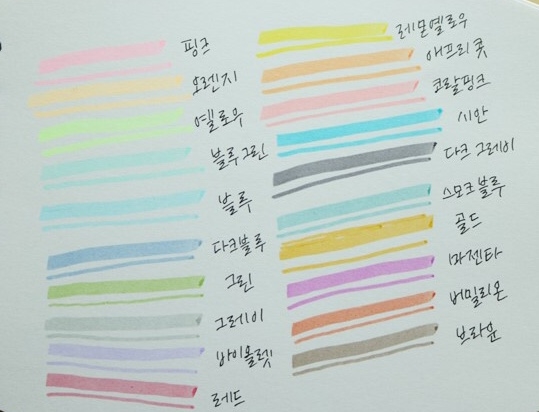 핑크
오렌지
옐로우
블루그린
블루
다크블루
그린
그레이
바이올렛
레드
레몬옐로우
애프리콧
코랄핑크
시안
다크 그레이
스모크블루
골드
마젠타
버밀리온
브라운